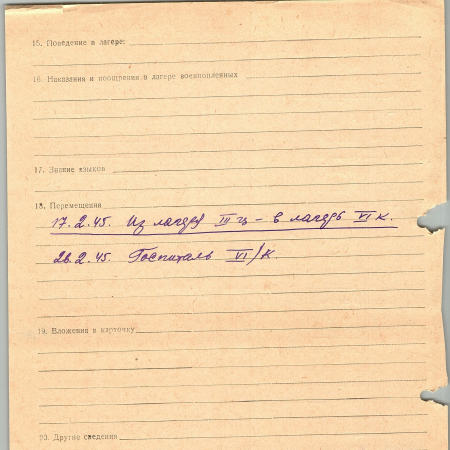 15. Поведение в лагере
16. Наказания и поощрения в лагере военнопленных
17. Знание языков
18. Перемещения
17.2.45. Из лагеря III ц – в лагерь VI к.
26.2.45. Госпиталь VI/к.
19. Вложения в карточку
20. Другие сведения